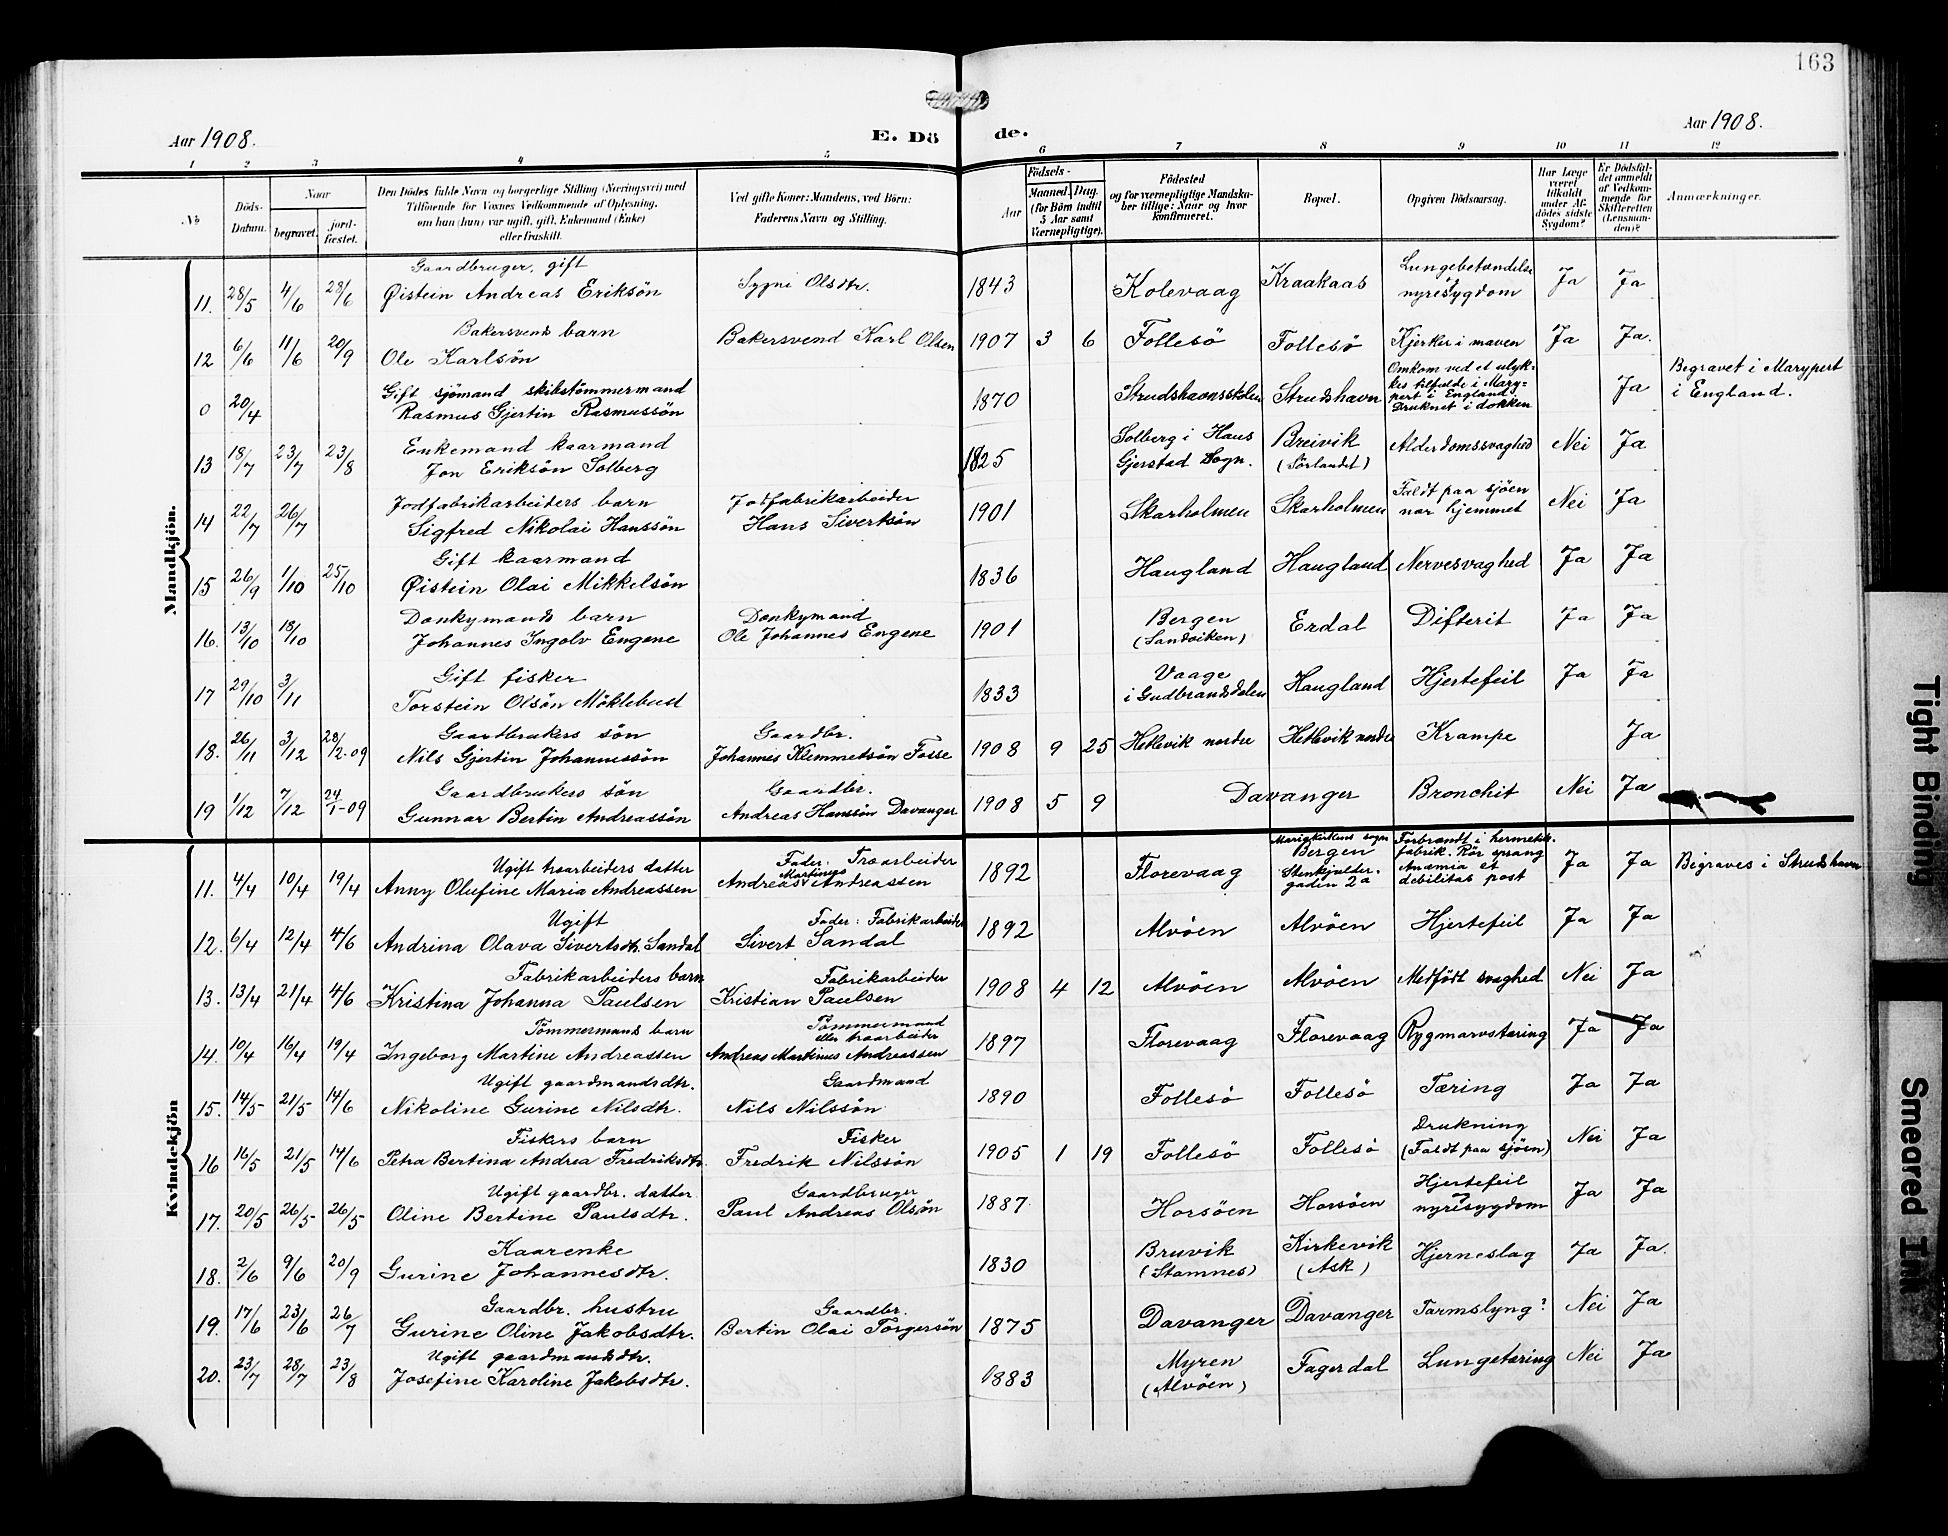 163
Aar 1908.
E. Dö de.
Aar 1908.
1 2 3 4 5 6 7 8 9 10 11 12
No
Döds-Datum.
Naar
begravet.
jord-fæstet.
Den Dödes fulde Navn og borgerlige Stilling (Næringsvei) med
Tilföiende for Voxnes Vedkommende af Oplysning,
om han (hun) var ugift, gift, Enkemand (Enke)
eller fraskilt.
Ved gifte Koner: Mandens, ved Börn:
Faderens Navn og Stilling.
Födsels-
Aar
Maaned.
Dag.
(for Börn indtil
5 Aar samt
Værnepligtige).
Födested
og for værnepligtige Mandska-
ber tillige: Naar og hvor
Konfirmeret.
Bopæl.
Opgiven Dödsaarsag.
Har Læge
været
tilkaldt
under Af-
dödes sidste
Sygdom?
Er Dödsfal-
det anmeldt
af Vedkom-
mende for
Skifteretten
(Lensman-
den)?
Anmærkninger.
Mandkjön.
Gaardbruger, gift
11. 28/5 4/6 28/6 Øistein Andreas Eriksön Sygni Olsdtr. 1843 Kolevaag Kraakaas Lungebetændelse og nyresygdom Ja Ja
Bakersvends barn
12 6/6 11/6 20/9 Ole Karlsön Bakersvend Karl Olsen 1907 3 6 Follesö Follesö Kjerker i maven Ja Ja.
Gift sjömand skibstömmermand
0 20/4 Rasmus Gjertin Rasmussön 1870 Strudshavnsstölen Strudshavn Omkom ved et ulyk-
kes tilfælde i Mary-
port i England.
Druknet i dokken Ja Begravet i Marypert
i England.
Enkemand kaarmand
13 18/7 23/7 23/8 Jon Eriksön Solberg 1825 Solberg i Haus
Gjerstad Sogn. Breivik
(Sörlandet) Alderdomssvaghed Nei Ja
Jodfabrikarbeiders barn Jodfabrikarbeider
14 22/7 26/7 Sigfred Nikolai Hanssön Hans Sivertsön 1901 Skarholmen Skarholmen Faldt paa sjöen
nær hjemmet Nei Ja
Gift kaarmand
15 26/9 1/10 25/10 Øistein Olai Mikkelsön 1836 Haugland Haugland Nervesvaghed Ja Ja
Donkymands barn Donkymand
16. 13/10 18/10 Johannes Ingolv Engene Ole Johannes Engene 1901 Bergen
(Sandviken) Erdal Difterit Ja Ja
Gift fisker
17 29/10 3/11 Torstein Olsön Möklebust 1833 Vaage
i Gudbrandsdalen Haugland Hjertefeil Ja Ja
Gaardbrukers sön Gaardbr.
18. 26/11 3/12 28/2-09 Nils Gjertin Johannessön Johannes Klemmetsön Fosse 1908 9 25 Hetlevik nordre Hetlevik nordre Krampe Ja
Gaardbrukers sön Gaardbr.
19 1/12 7/12 24/1-09 Gunnar Bertin Andreassön Andreas Hanssön Davanger 1908 5 9 Davanger Bronchit Nei Ja
Kvindekjön
Ugift træarbeiders datter Fader: Træarbeider
11. 4/4 10/4 19/4 Anny Olufine Maria Andreassen Andreas Martinus Andreassen 1892 Florevaag Mariakirkens sogn
Bergen
Stenkjelder-
gaden 2a Forbrændt i hermetik-
fabrik. Rör sprang
Anæmia et
debilitas post Ja Ja Begraves i Strudshavn
Ugift Fader: Fabrikarbeider
12. 6/4 12/4 4/6 Andrina Olava Sivertsdtr. Sandal Sivert Sandal 1892 Alvöen Alvöen Hjertefeil Ja Ja
Fabrikarbeiders barn Fabrikarbeider
13. 13/4 21/4 4/6 Kristina Johanna Paulsen Kristian Paulsen 1908 4 12 Alvöen Alvöen Medfödt svaghed Nei Ja
Tömmermands barn Tömmermand
eller træarbeider
14. 10/4 16/4 19/4 Ingeborg Martine Andreassen Andreas Martinus Andreassen 1897 Florevaag Florevaag Rygmarvstæring Ja Ja
Ugift gaardmandsdtr. Gaardmand
15. 14/5 21/5 14/6 Nikoline Gurine Nilsdtr. Nils Nilssön 1890 Follesö Follesö Tæring Ja Ja
Fiskers barn Fisker
16 16/5 21/5 14/6 Petra Bertina Andrea Fredriksdtr. Fredrik Nilssön 1905 1 19 Follesö Follesö Drukning
(Faldt paa sjöen) Nei Ja
Ugift gaardbr. datter Gaardbruger
17. 20/5 26/5 26/5 Oline Bertine Paulsdtr. Paul Andreas Olsön 1887 Horsöen Horsöen Hjertefeil
og nyresygdom Ja Ja
Kaarenke
18. 2/6 9/6 20/9 Gurine Johannesdtr. 1830 Bruvik
(Stamnes) Kirkevik
(Ask) Hjerneslag Ja Ja.
Gaardbr. hustru Gaardbr.
19. 17/6 23/6 26/7 Gurine Oline Jakobsdtr. Bertin Olai Torgersön 1875 Davanger Davanger Tarmslyng? Nei Ja
Ugift gaardmandsdtr.
20. 23/7 28/7 23/8 Josefine Karoline Jakobsdtr. 1883 Myren
(Alvöen) Fagerdal Lungetæring Nei Ja
Tight Binding
Smeared Ink